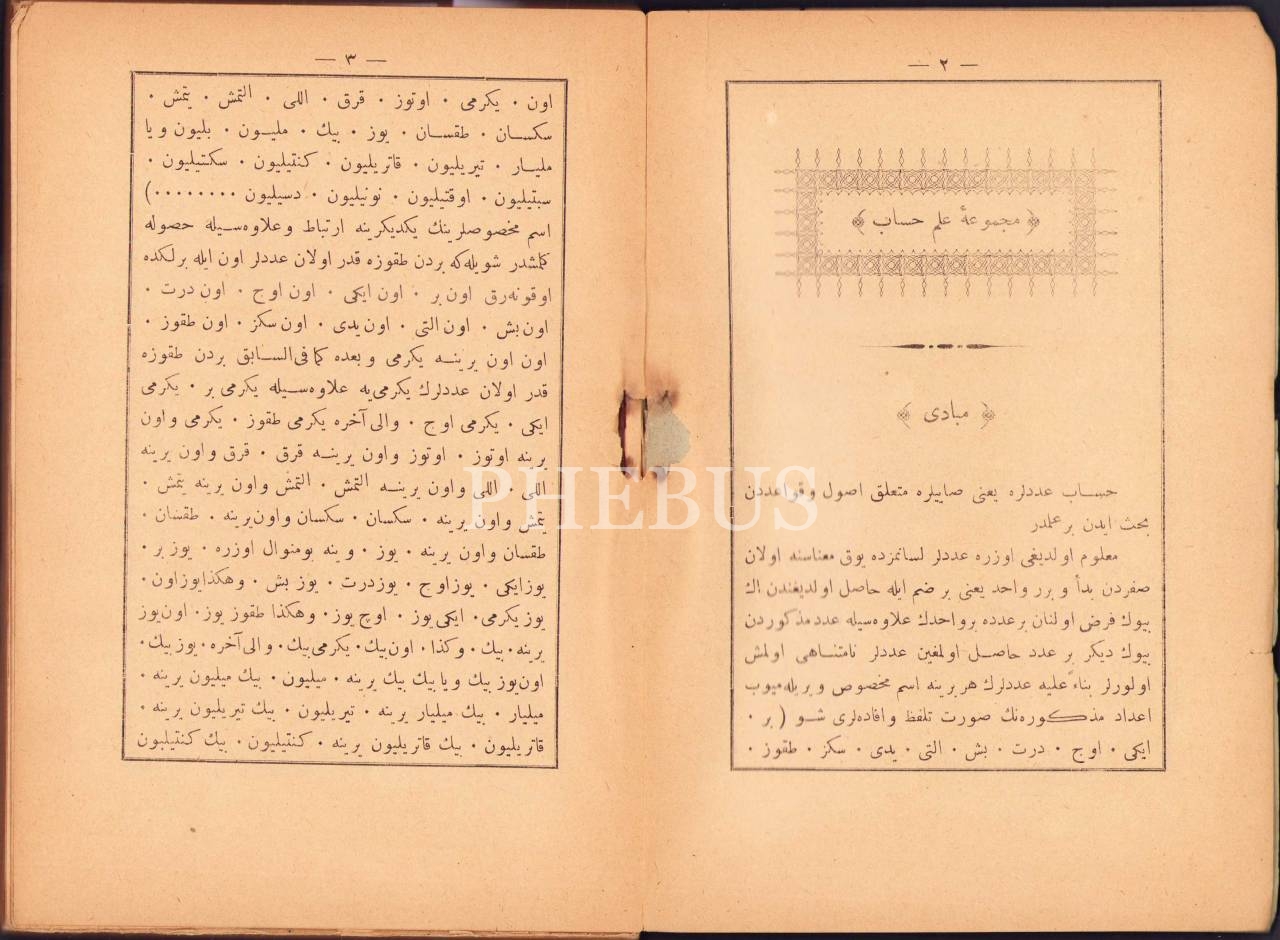 — ٢ —
﴿ مجموعهٔ علم حساب ﴾
﴿ مبادی ﴾
حساب عددلره یعنی صاییلره متعلق اصول وقواعددن
بحث ایدن برعلمدر
معلوم اولدیغی اوزره عددلر لسانمزده یوق معناسنه اولان
صفردن بدأ و برر واحد یعنی بر ضم ایله حاصل اولدیغندن اك
بیوك فرض اولنان برعدده برواحدك علاوه‌سیله عددمذکوردن
بیوك دیکر بر عدد حاصل اولمغین عددلر نامتناهی اولمش
اولورلر بناءً علیه عددلرك هربرینه اسم مخصوص ویریله‌میوب
اعداد مذکوره‌نك صورت تلفظ وافاده‌لری شو ( بر ·
ایکی · اوچ · درت · بش · التی · یدی · سکز · طقوز ·
— ٣ —
اون · یکرمی · اوتوز · قرق · اللی · التمش · یتمش ·
سکسان · طقسان · یوز · بیك · ملیون · بلیون ویا
ملیار · تیریلیون · قاتریلیون · کنتیلیون · سکستیلیون ·
سبتیلیون · اوقتیلیون · نونیلیون · دسیلیون ········)
اسم مخصوصلرینك یکدیکرینه ارتباط وعلاوه‌سیله حصوله
کلمشدر شویله‌که بردن طقوزه قدر اولان عددلر اون ایله برلکده
اوقونه‌رق اون بر · اون ایکی · اون اوچ · اون درت ·
اون بش · اون التی · اون یدی · اون سکز · اون طقوز ·
اون اون یرینه یکرمی وبعده کمافی‌السابق بردن طقوزه
قدر اولان عددلرك یکرمی‌یه علاوه‌سیله یکرمی بر · یکرمی
ایکی · یکرمی اوچ · والی آخره یکرمی طقوز · یکرمی واون
یرینه اوتوز · اوتوز واون یرینه قرق · قرق واون یرینه
اللی · اللی واون یرینه التمش · التمش واون یرینه یتمش ·
یتمش واون یرینه · سکسان · سکسان واون‌یرینه · طقسان ·
طقسان واون یرینه · یوز · وینه بومنوال اوزره · یوز بر ·
یوزایکی · یوزاوچ · یوزدرت · یوز بش · وهکذایوزاون ·
یوز یکرمی · ایکی یوز · اوچ یوز · وهکذا طقوز یوز · اون‌یوز
یرینه · بیك · وکذا · اون‌بیك · یکرمی‌بیك · والی آخره · یوز بیك ·
اون‌یوز بیك ویا بیك بیك یرینه · میلیون · بیك میلیون یرینه ·
میلیار · بیك میلیار یرینه · تیریلیون · بیك تیریلیون یرینه ·
قاتریلیون · بیك قاتریلیون یرینه · کنتیلیون · بیك کنتیلیون
PHEBUS